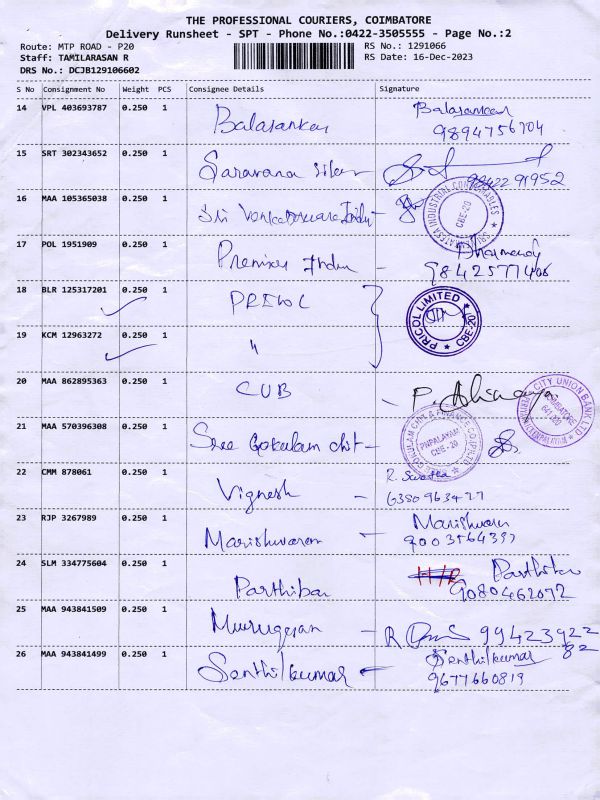 THE PROFESSIONAL COURIERS, COIMBATORE
Delivery Runsheet - SPT - Phone No.:0422-3505555 - Page No.:2
Route: MTP ROAD - P20
RS No.: 1291066
Staff: TAMILARASAN R
RS Date: 16-Dec-2023
DRS No.: DCJB129106602
S No Consignment No Weight PCS Consignee Details Signature
14 VPL 403693787 0.250 1 Balasankar Balasankar
9894756704
15 SRT 302343652 0.250 1 Saravana
98422 91952
16 MAA 105365038 0.250 1 Sri Venkateswara
INDUSTRIAL CONSUMABLES
CBE-20
17 POL 1951909 0.250 1 Premier
9842577406
18 BLR 125317201 0.250 1 PRICOL
PRICOL LIMITED
CBE-20
19 KCM 12963272 0.250 1 "
20 MAA 862895363 0.250 1 CUB P.
CITY UNION BANK LTD
COIMBATORE
641 020
21 MAA 570396308 0.250 1 Sree Gokulam chit
GOKULAM CHIT & FINANCE CO (P) LTD
PNPALAYAM
CBE-20
22 CMM 878061 0.250 1 Vignesh R. Swetha
6380963427
23 RJP 3267989 0.250 1 Marishwaran Marishwaran
9003564397
24 SLM 334775604 0.250 1 Parthiban Parthiban
9080462072
25 MAA 943841509 0.250 1 Murugesan R
99423922
82
26 MAA 943841499 0.250 1 Senthilkumar Senthilkumar
9677660819